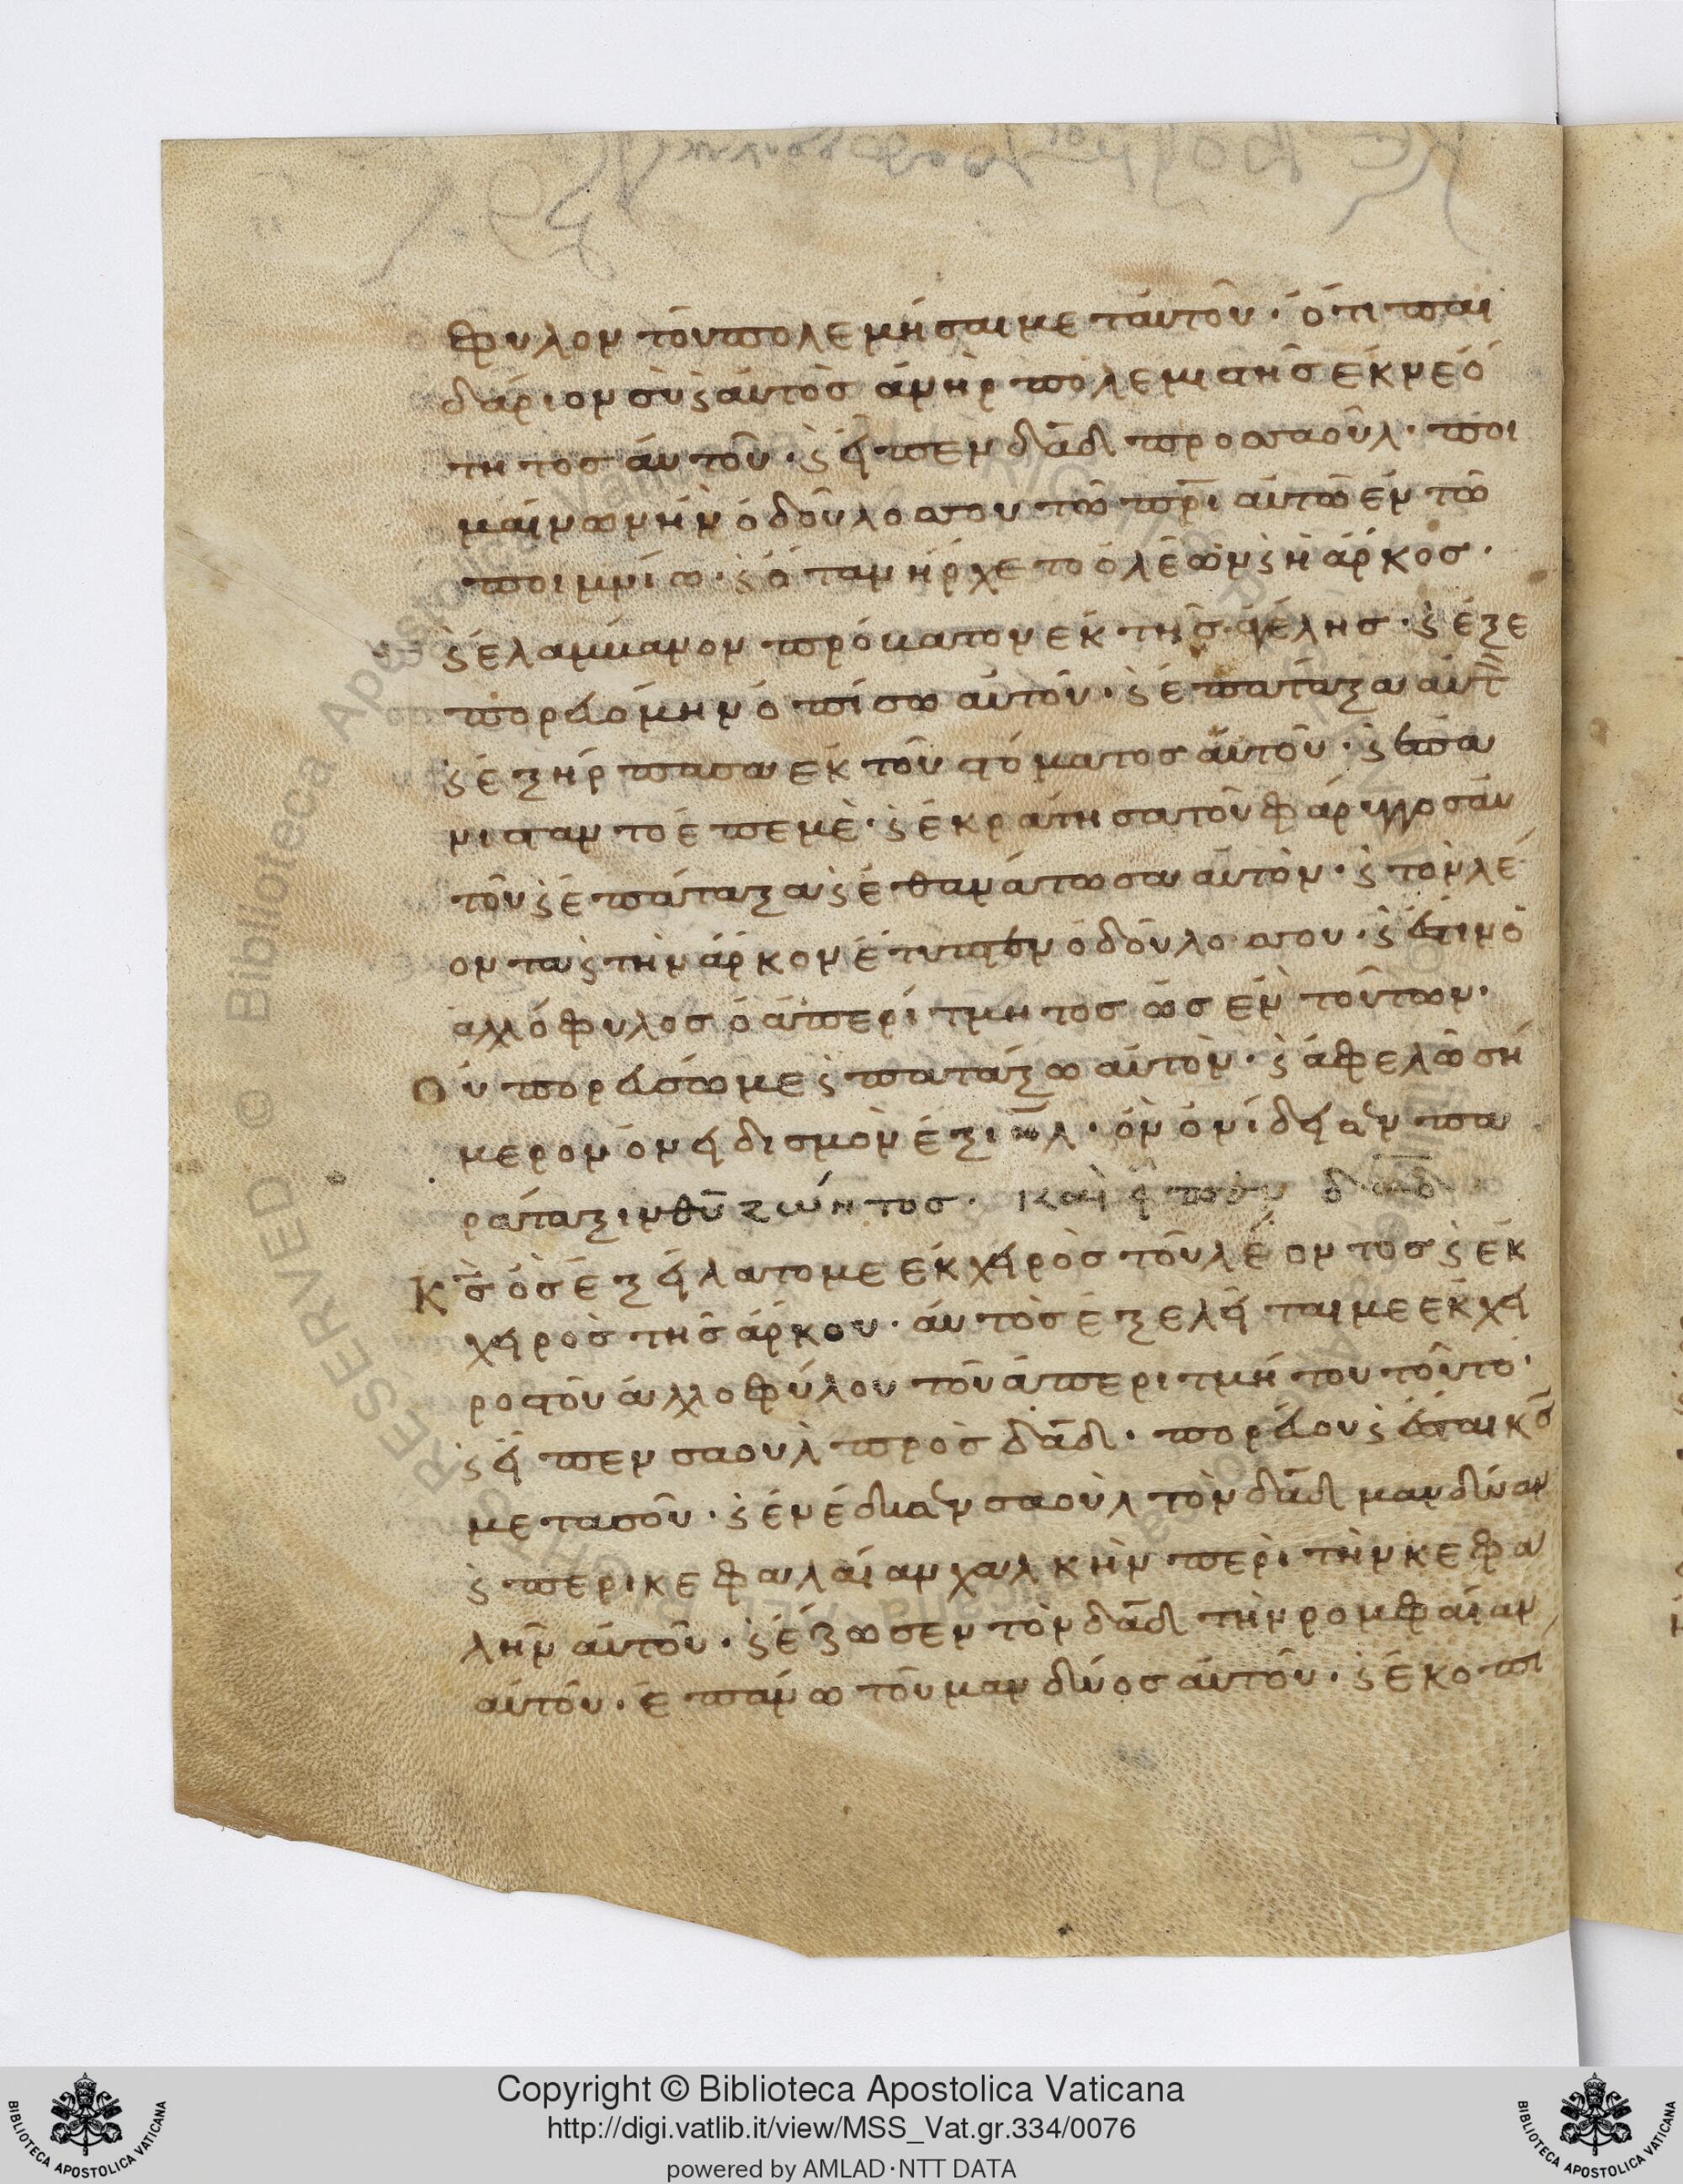 φυλον τοῦ πολεμῆσαι μετ' αὐτοῦ· ὅτι παι
δάριον σὺ ϛ αὐτὸς ἀνὴρ πολεμιστὴς ἐκ νεό
τητος αὐτοῦ· ϛ εἶπεν δᾱδ προς σαοῦλ· ποι
μαίνων ἦν ὁ δοῦλος σου τῶ πρ̄ι αὐτῶ ἐν τῶ
ποιμνίω· ϛ ὅταν ἤρχετο ὁ λέων ϛ ἡ ἄρκος·
ϛ ἐλάμβανον πρόβατον ἐκ τῆς ἀγέλης· ϛ ἐξε
πορευόμην ὀπίσω αὐτοῦ· ϛ ἐπάταξα αὐτ
ϛ ἐξήρπασα ἐκ τοῦ στόματος αὐτοῦ· ϛ ἐπα
νίσταντο ἐπ' ἐμὲ· ϛ ἐκράτησα τοῦ φάρυγγος αὐ
τοῦ ϛ ἐπάταξα ϛ ἐθανάτωσα αὐτὸν· ϛ τὸν λέ
οντα ϛ τὴν ἄρκον ἔτυπτεν ὁ δοῦλος σου· ϛ ἔσται ὁ
ἀλλόφυλος ὁ ἀπερίτμητος ὡς ἓν τούτων·
Οὐ πορεύσωμε ϛ πατάξω αὐτὸν· ϛ ἀφελῶ σή
μερον ὀνειδισμὸν ἐξ ιη̄λ· ὃν ὀνίδεισεν πα
ράταξιν θῡ ζώντος. Καὶ εἶπεν δᾱδ
Κς̄ ὃς ἐξείλατο με ἐκ χειρὸς τοῦ λέοντος ϛ ἐκ
χειρὸς τῆς ἄρκου· αὐτὸς ἐξελεῖται με ἐκ χει
ρος τοῦ ἀλλοφύλου τοῦ ἀπεριτμήτου τούτο·
ϛ εἶπεν σαουλ πρὸς δᾱδ· πορεύου ϛ ἔσται κς̄
μετα σοῦ· ϛ ἐνέδυσεν σαοὺλ τὸν δᾱδ μανδύαν
ϛ περικεφαλαίαν χαλκὴν περὶ τὴν κεφα
λὴν αὐτοῦ· ϛ ἔζωσεν τὸν δᾱδ τὴν ρομφαίαν
αὐτοῦ· ἐπάνω τοῦ μανδύος αὐτοῦ· ϛ ἐκοπι
Copyright © Biblioteca Apostolica Vaticana
http://digi.vatlib.it/view/MSS_Vat.gr.334/0076
powered by AMLAD·NTT DATA
BIBLIOTECA APOSTOLICA VATICANA
BIBLIOTECA APOSTOLICA VATICANA